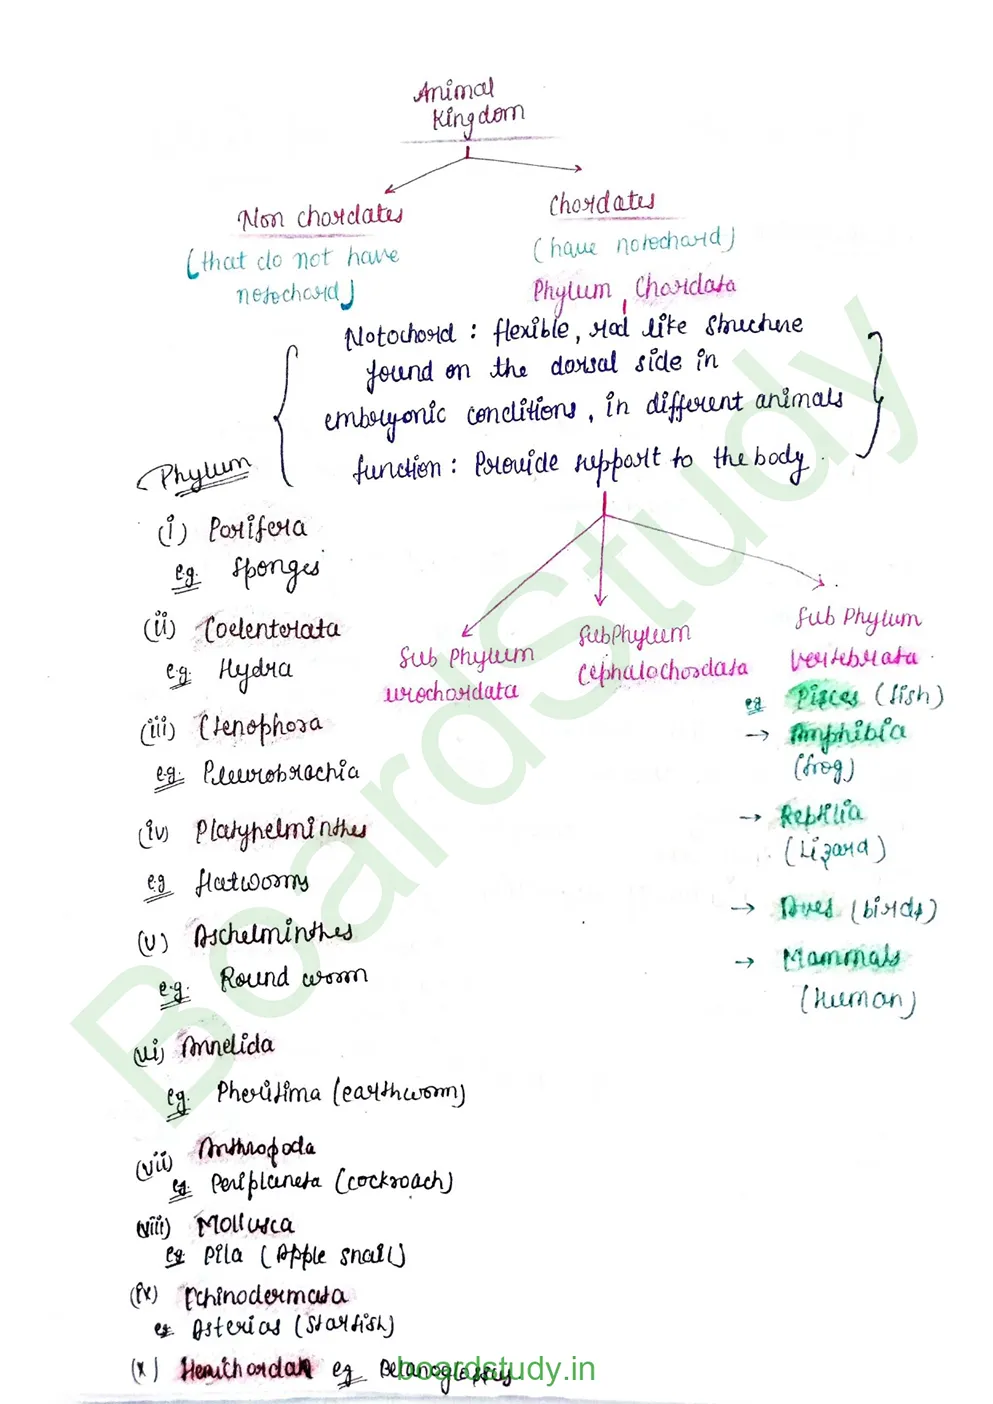 Animal
Kingdom
Non chordates
(that do not have
notochord)
Chordates
(have notochord)
Phylum Chordata
Notochord : flexible, rod like structure
found on the dorsal side in
embryonic conditions, in different animals
function : Provide support to the body.
Phylum
(i) Porifera
eg. Sponges
(ii) Coelenterata
eg. Hydra
(iii) Ctenophora
eg. Pleurobrachia
(iv) Platyhelminthes
eg flatworms
(v) Aschelminthes
eg. Round worm
(vi) Annelida
eg. Pheritima (earthworm)
(vii) Anthropoda
eg. Periplaneta (cockroach)
(viii) Mollusca
eg. Pila (Apple snail)
(ix) Echinodermata
eg. Asterias (Starfish)
(x) Hemichordata eg Balanoglossus
Sub Phylum
urochordata
SubPhylum
Cephalochordata
Sub Phylum
Vertebrata
eg Pisces (fish)
→ Amphibia
(frog)
→ Reptilia
(Lizard)
→ Aves (birds)
→ Mammals
(Human)
BoardStudy
boardstudy.in